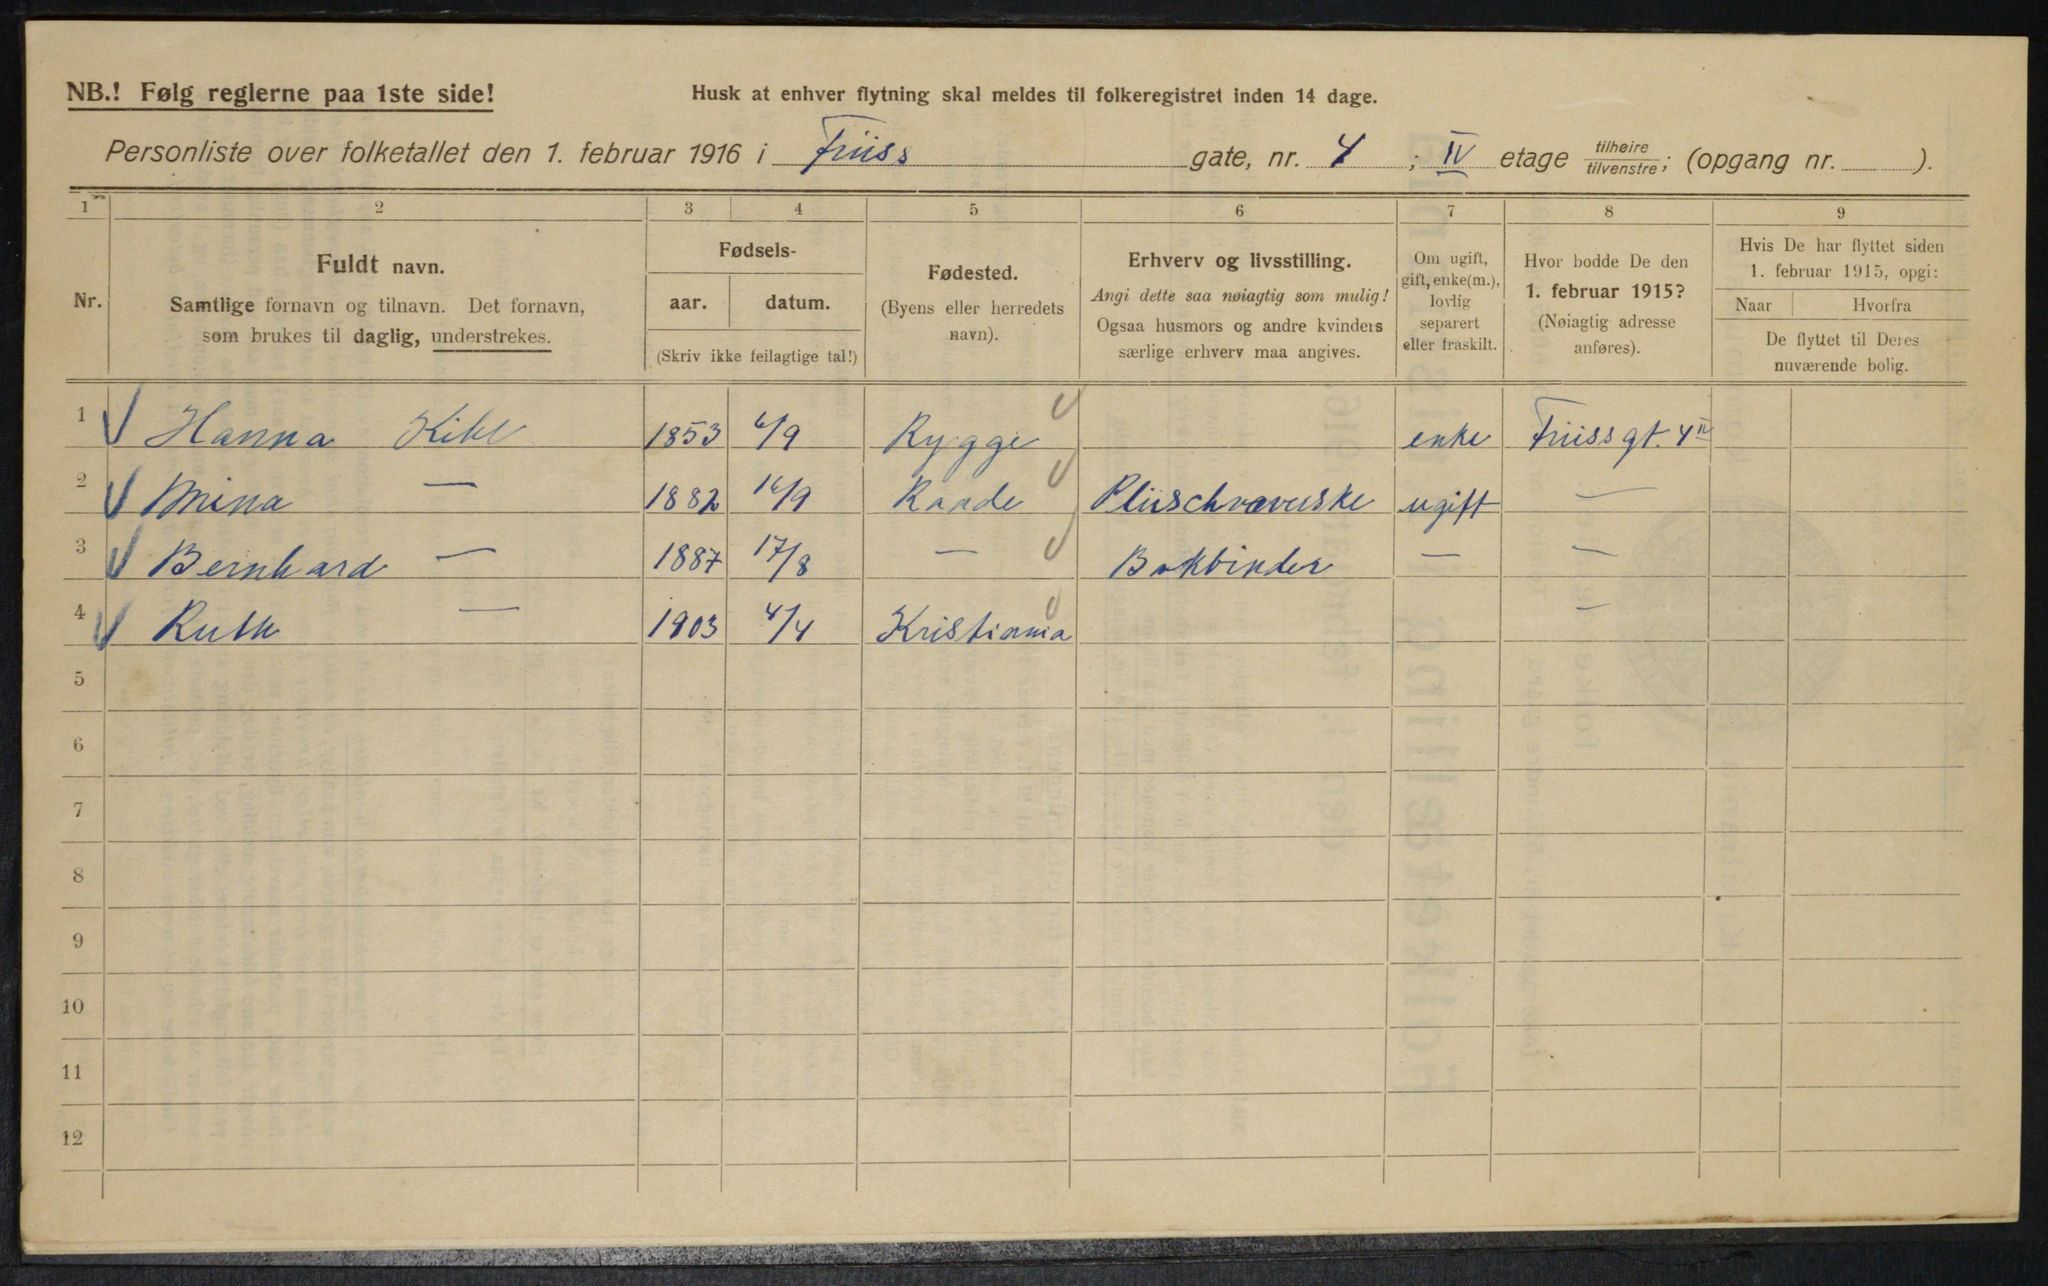 NB.! Følg reglerne paa 1ste side!
Husk at enhver flytning skal meldes til folkeregistret inden 14 dage.
Personliste over folketallet den 1. februar 1916 i Friiss gate, nr. 4 ; IV etage tilhøire/tilvenstre; (opgang nr. ).
1 2 3 4 5 6 7 8 9
Nr.
Fuldt navn.
Samtlige fornavn og tilnavn. Det fornavn,
som brukes til daglig, understrekes.
Fødsels-
aar. datum.
(Skriv ikke feilagtige tal!)
Fødested.
(Byens eller herredets
navn).
Erhverv og livsstilling.
Angi dette saa nøiagtig som mulig!
Ogsaa husmors og andre kvinders
særlige erhverv maa angives.
Om ugift,
gift, enke(m.),
lovlig
separert
eller fraskilt.
Hvor bodde De den
1. februar 1915?
(Nøiagtig adresse
anføres).
Hvis De har flyttet siden
1. februar 1915, opgi:
Naar Hvorfra
De flyttet til Deres
nuværende bolig.
1 Hanna 1853 6/9 Rygge enke Friissgt. 4 IV
2 Mina — 1882 16/9 Raade Plüschvæverske ugift —
3 Bernhard — 1887 17/8 — Bokbinder — —
4 Ruth — 1903 4/4 Kristiania —
5
6
7
8
9
10
11
12